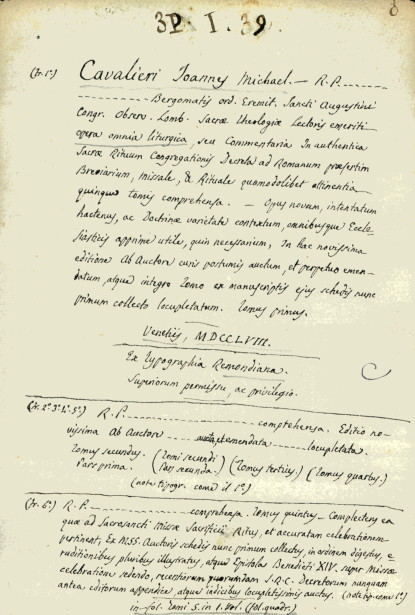 3P. I. 39.
8
(Tr. 1º) Cavalieri Joannes Michael. — R. P. ----
---------- Bergomatis ord. Eremit. Sancti Augustini
Congr. Observ. Lomb. Sacræ theologiæ Lectoris emeriti
opera omnia liturgica, seu Commentaria In authentica
Sacræ Rituum Congregationis Decreta ad Romanum præsertim
Breviarium, missale, & Rituale quomodolibet attinentia
quinque tomis comprehensa. — Opus novum, intentatum
hactenus, ac Doctrinæ varietate contextum, omnibusque Eccle-
siasticis apprime utile, quin necessarium, In hac novissima
editione Ab Auctore curis postumis auctum, et perpetuo emen-
datum, atque integro Tomo ex manuscriptis ejus schedis nunc
primum collecto locupletatum. Tomus primus.
Venetiis, MDCCLVIII.
Ex typographia Remondiana.
Superiorum permissu, ac privilegio.
(Tr. 2º 3º 4º 5º) R. P. ---------- comprehensa. Editio no-
vissima Ab Auctore ---- aucta, et emendata ---- locupletata.
Tomus secundus. (Tomi secundi) (Tomus tertius) (Tomus quartus.)
Pars prima. (Pars secunda.)
(note tipogr. come il 1º)
(Tr. 6º) R. P. ---------- comprehensa. Tomus quintus — Complectens ea
quæ ad Sacrosancti missæ Sacrificii Ritus, et accuratam celebrationem
pertinent, Ex MSS. Auctoris schedis nunc primum collectus, in ordinem digestus, e-
ruditionibus pluribus illustratus, atque Epistolas Benedicti XIV. super Missæ
celebratione redendo, recentiorum quorumdam S. R. C. Decretorum nunquam
antea editorum appendice, atque indicibus locupletissimis auctus. (note tip. come 1º)
in-fol. Tomi 5. in 1. vol. (fol. quadr.)